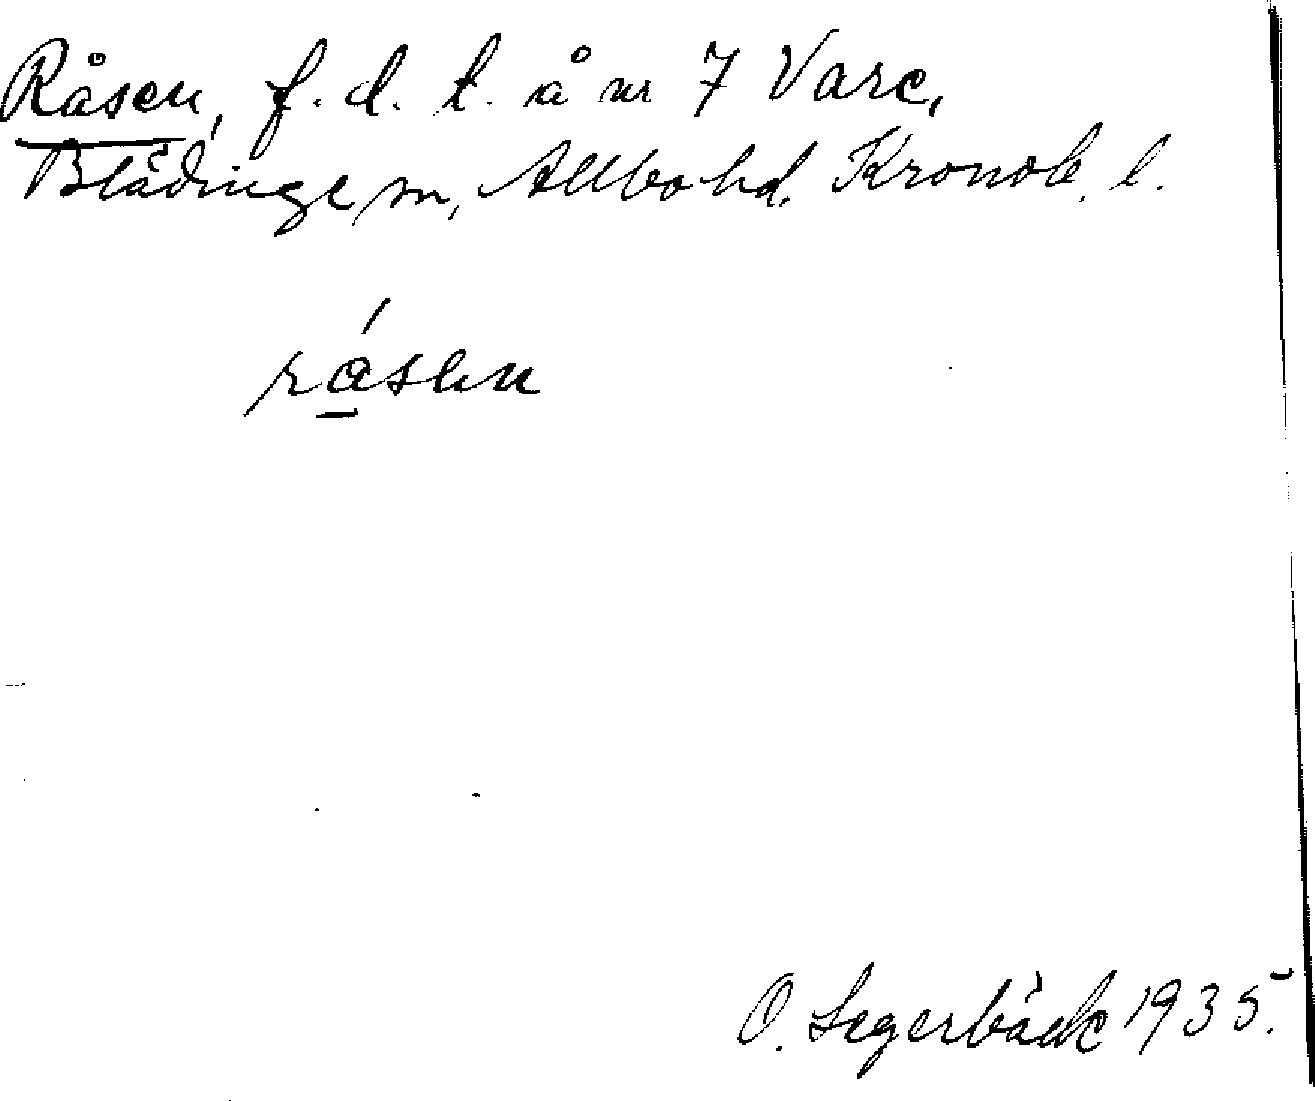 Råsen, f. d. t. å nr 7 Vare,
Blädinge sn, Allbo hd. Kronob. l.
råsen
O. Segerbäck 1935.